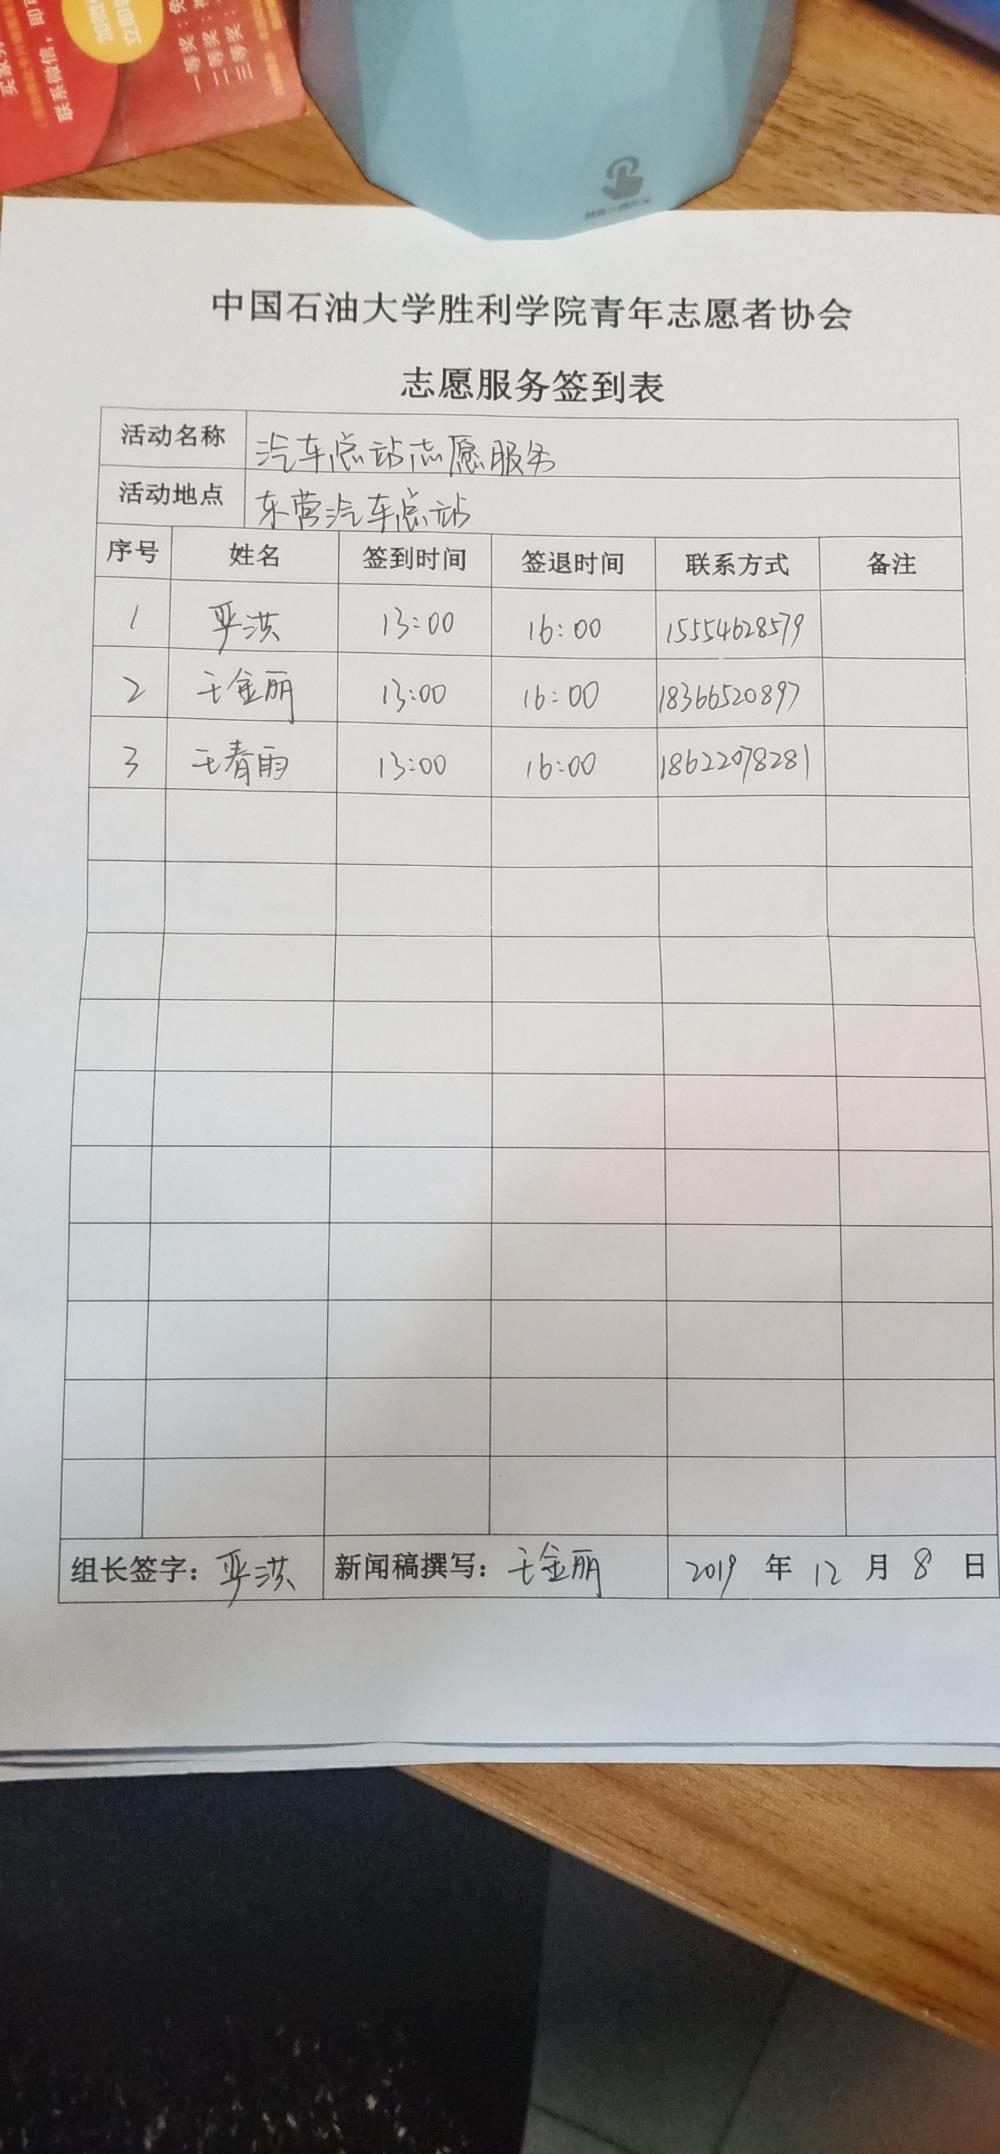 联系微信，即可
立即
一等奖：免
二等奖：
三等奖：
中国石油大学胜利学院青年志愿者协会
志愿服务签到表
活动名称 汽车总站志愿服务
活动地点 东营汽车总站
序号 姓名 签到时间 签退时间 联系方式 备注
1 严洪 13:00 16:00 15554628579
2 王金丽 13:00 16:00 18366520897
3 王春雨 13:00 16:00 18622078281
组长签字：严洪 新闻稿撰写：王金丽 2019 年 12 月 8 日